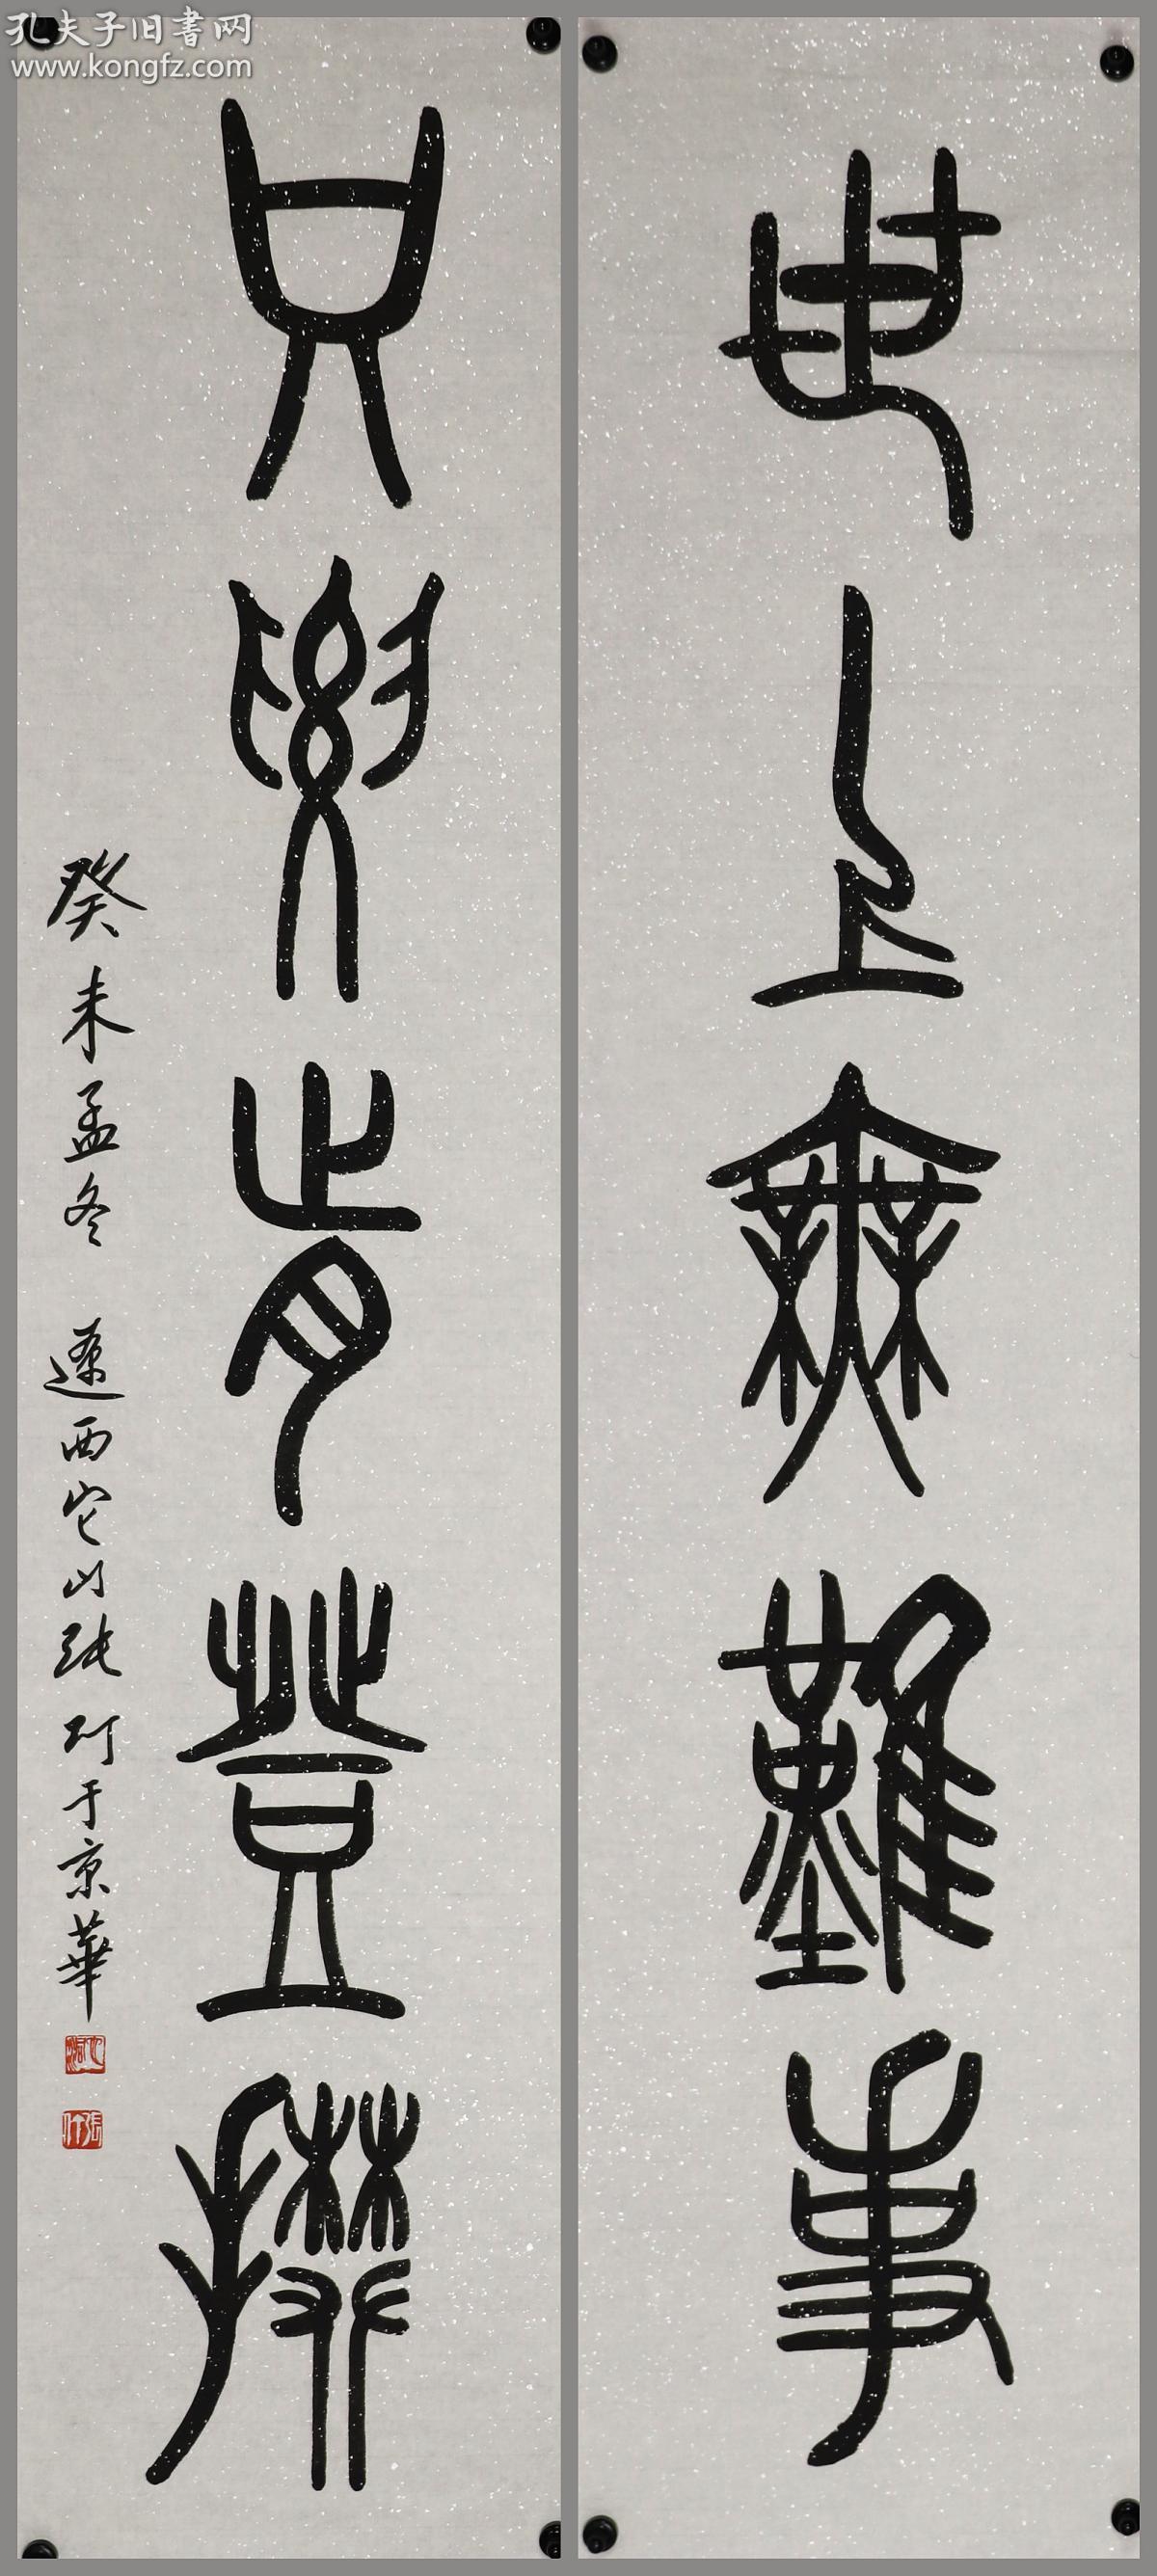 孔夫子旧書网
www.kongfz.com
世上無難事
只要肯登攀
癸未孟冬 遼西它山張 于京華